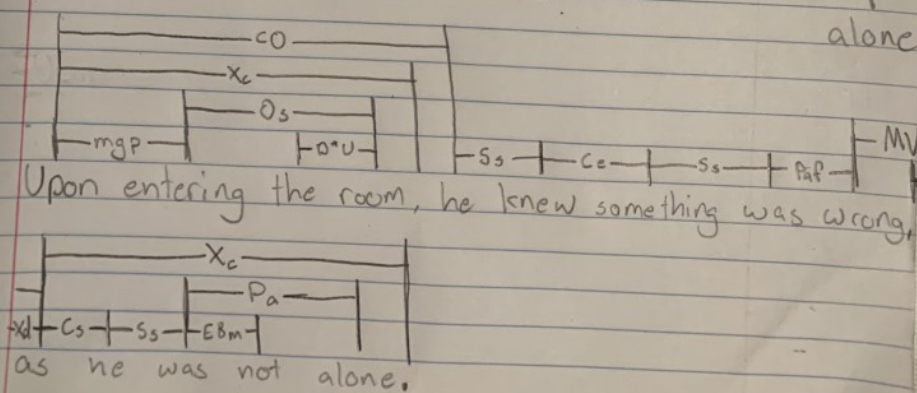 alone
CO
Xc
Os
mgp
D*U
Ss Ce Ss Paf MV
Upon entering the room, he knew something was wrong,
Xc
Pa
Xd Cs Ss EBm
as he was not alone.